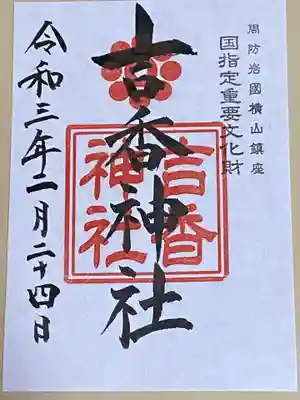 周防岩國横山鎮座
国指定重要文化財
吉香神社
吉香
神社
令和三年二月二十四日